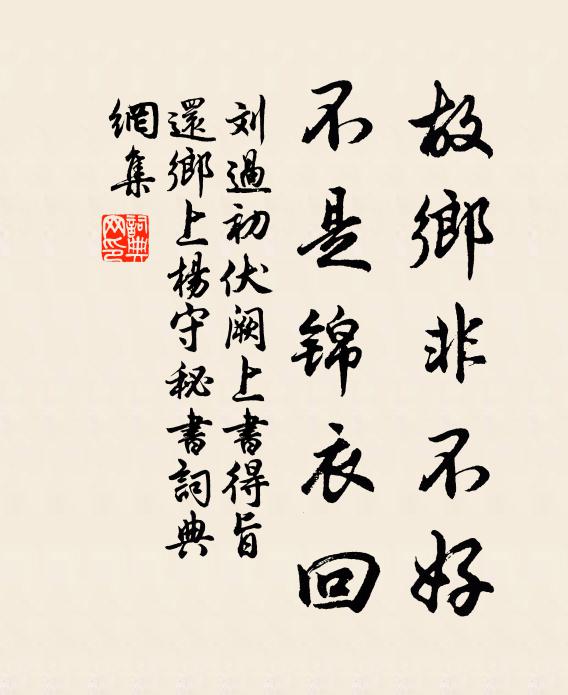 故鄉非不好
不是锦衣回
刘過初伏阙上書得旨
還鄉上楊守秘書詞典
網集
詞典
网印